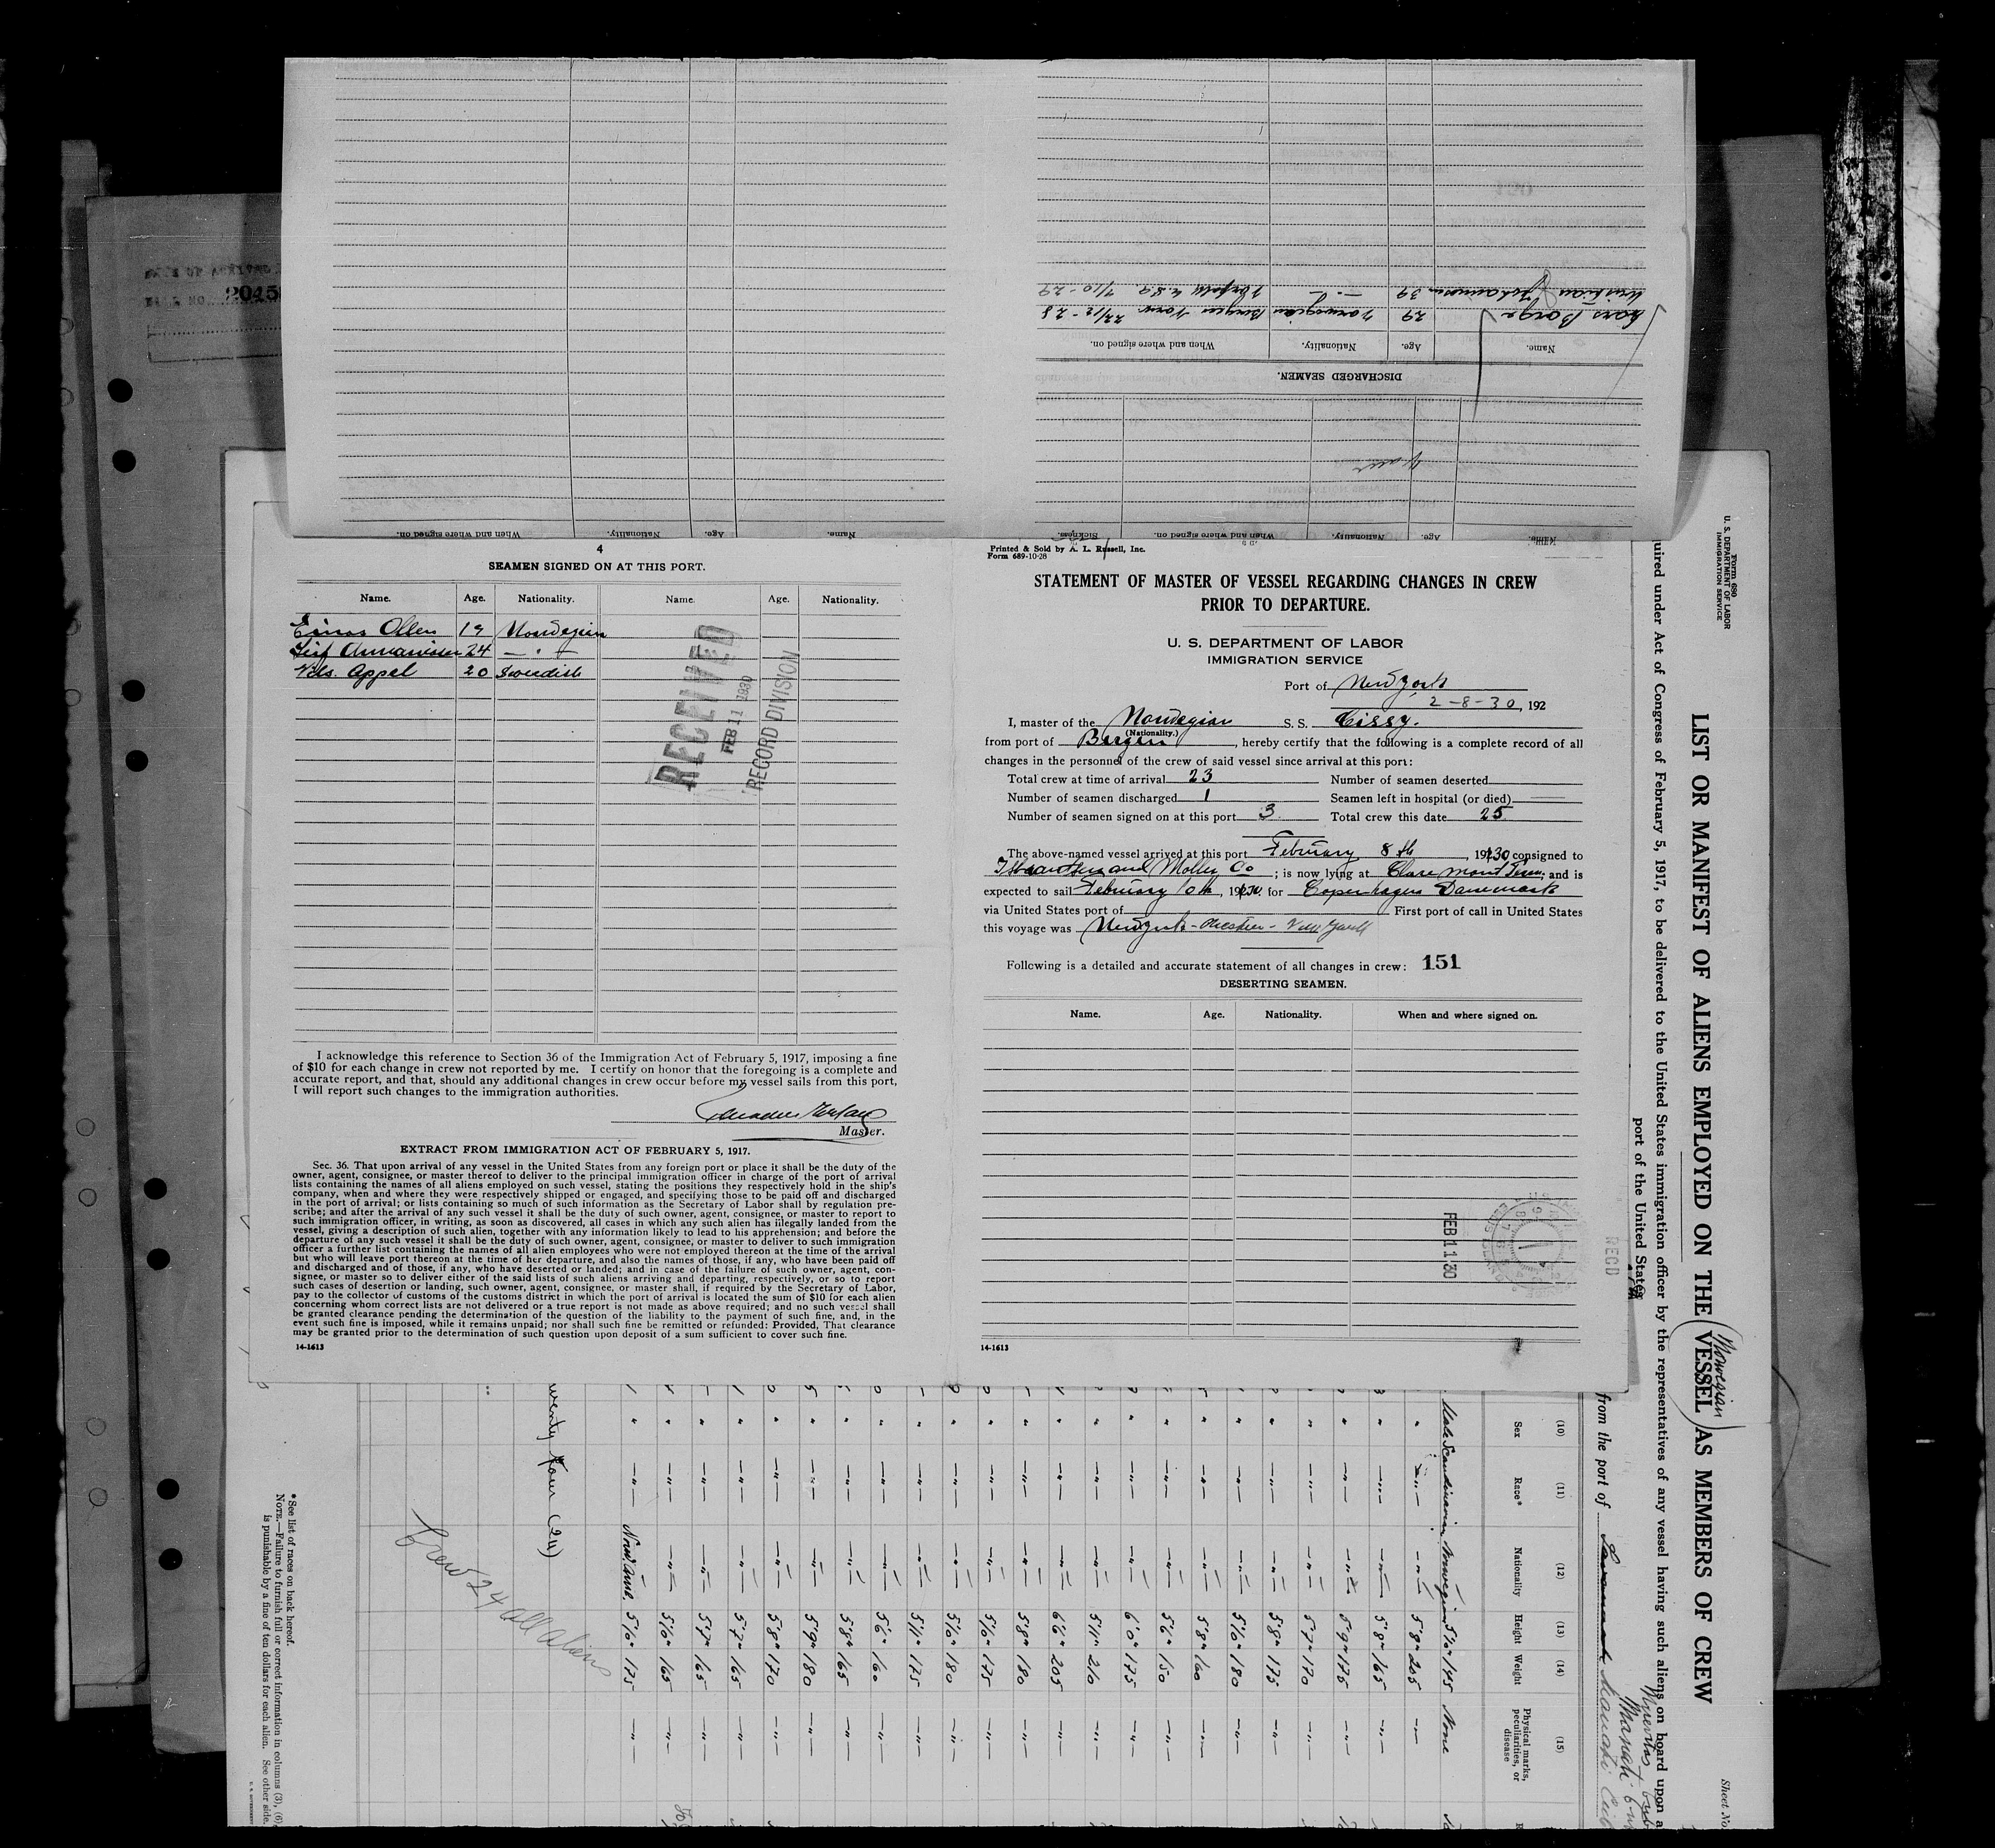 DATE OF ARRIVAL
FILE NO. 2045
Name. Age. Nationality. When and where signed on.
Name. Age. Nationality. When and where signed on. Sickness.
DISCHARGED SEAMEN.
Name. Age. Nationality. When and where signed on.
Lars Borge 29 Norwegian Bergen Norw. 22/12-28
Kristian Johannesen 39 — " — Norfolk U.S.A. 7/10-29
4
SEAMEN SIGNED ON AT THIS PORT.
Name. Age. Nationality. Name. Age. Nationality.
Einar Olsen 19 Norwegian
Leif 24 — " —
Nils. Appel 20 Swedish
RECEIVED
FEB 11 1930
RECORD DIVISION
I acknowledge this reference to Section 36 of the Immigration Act of February 5, 1917, imposing a fine
of $10 for each change in crew not reported by me. I certify on honor that the foregoing is a complete and
accurate report, and that, should any additional changes in crew occur before my vessel sails from this port,
I will report such changes to the immigration authorities.
Master.
EXTRACT FROM IMMIGRATION ACT OF FEBRUARY 5, 1917.
Sec. 36. That upon arrival of any vessel in the United States from any foreign port or place it shall be the duty of the
owner, agent, consignee, or master thereof to deliver to the principal immigration officer in charge of the port of arrival
lists containing the names of all aliens employed on such vessel, stating the positions they respectively hold in the ship's
company, when and where they were respectively shipped or engaged, and specifying those to be paid off and discharged
in the port of arrival; or lists containing so much of such information as the Secretary of Labor shall by regulation pre-
scribe; and after the arrival of any such vessel it shall be the duty of such owner, agent, consignee, or master to report to
such immigration officer, in writing, as soon as discovered, all cases in which any such alien has illegally landed from the
vessel, giving a description of such alien, together with any information likely to lead to his apprehension; and before the
departure of any such vessel it shall be the duty of such owner, agent, consignee, or master to deliver to such immigration
officer a further list containing the names of all alien employees who were not employed thereon at the time of the arrival
but who will leave port thereon at the time of her departure, and also the names of those, if any, who have been paid off
and discharged and of those, if any, who have deserted or landed; and in case of the failure of such owner, agent, con-
signee, or master so to deliver either of the said lists of such aliens arriving and departing, respectively, or so to report
such cases of desertion or landing, such owner, agent, consignee, or master shall, if required by the Secretary of Labor,
pay to the collector of customs of the customs district in which the port of arrival is located the sum of $10 for each alien
concerning whom correct lists are not delivered or a true report is not made as above required; and no such vessel shall
be granted clearance pending the determination of the question of the liability to the payment of such fine, and, in the
event such fine is imposed, while it remains unpaid; nor shall such fine be remitted or refunded: Provided, That clearance
may be granted prior to the determination of such question upon deposit of a sum sufficient to cover such fine.
14-1613
Printed & Sold by A. L. Russell, Inc.
Form 689-10-28
STATEMENT OF MASTER OF VESSEL REGARDING CHANGES IN CREW
PRIOR TO DEPARTURE.
U. S. DEPARTMENT OF LABOR
IMMIGRATION SERVICE
Port of New York
2-8-30, 192
I, master of the Norwegian S. S. Cissy.
(Nationality.)
from port of Bergen, hereby certify that the following is a complete record of all
changes in the personnel of the crew of said vessel since arrival at this port:
Total crew at time of arrival 23 Number of seamen deserted
Number of seamen discharged 1 Seamen left in hospital (or died)
Number of seamen signed on at this port 3. Total crew this date 25
The above-named vessel arrived at this port February 8th, 1930 consigned to
and Co; is now lying at Claremont Term; and is
expected to sail February 10th, 1930. for Copenhagen Danmark
via United States port of First port of call in United States
this voyage was New York - Chester - New York
Following is a detailed and accurate statement of all changes in crew: 151
DESERTING SEAMEN.
Name. Age. Nationality. When and where signed on.
FEB 11 30
RECD
14-1613
Form 689
U. S. DEPARTMENT OF LABOR
IMMIGRATION SERVICE
Sheet No.
LIST OR MANIFEST OF ALIENS EMPLOYED ON THE VESSEL AS MEMBERS OF CREW
Norwegian
quired under Act of Congress of February 5, 1917, to be delivered to the United States immigration officer by the representatives of any vessel having such aliens on board upon a
port of the United States
from the port of Manati Cuba
Manati
(10) (11) (12) (13) (14) (15)
Sex Race* Nationality Height Weight Physical marks, peculiarities, or disease
Male Scandinavian Norwegian 5'10" 145 None
" — " — — " — 5'8" 205 — " —
" — " — — " — 5'8" 165 — " —
" — " — — " — 5'9" 175 — " —
" — " — — " — 5'7" 170 — " —
" — " — — " — 5'8" 175 — " —
" — " — — " — 5'10" 180 — " —
" — " — — " — 5'8" 160 — " —
" — " — — " — 5'6" 150 — " —
" — " — — " — 6'0" 175 — " —
" — " — — " — 5'11" 210 — " —
" — " — — " — 6'6" 205 — " —
" — " — — " — 5'8" 180 — " —
" — " — — " — 5'10" 175 — " —
" — " — — " — 5'10" 180 — " —
" — " — — " — 5'11" 175 — " —
" — " — — " — 5'6" 160 — " —
" — " — — " — 5'8" 165 — " —
" — " — — " — 5'9" 180 — " —
" — " — — " — 5'8" 170 — " —
" — " — — " — 5'7" 165 — " —
" — " — — " — 5'7" 165 — " —
" — " — — " — 5'10" 165 — " —
" — " — 5'10" 175 — " —
wenty four (24)
Crew 24 all aliens
*See list of races on back hereof.
NOTE.—Failure to furnish full or correct information in columns (3), (6),
is punishable by a fine of ten dollars for each alien. See other side.